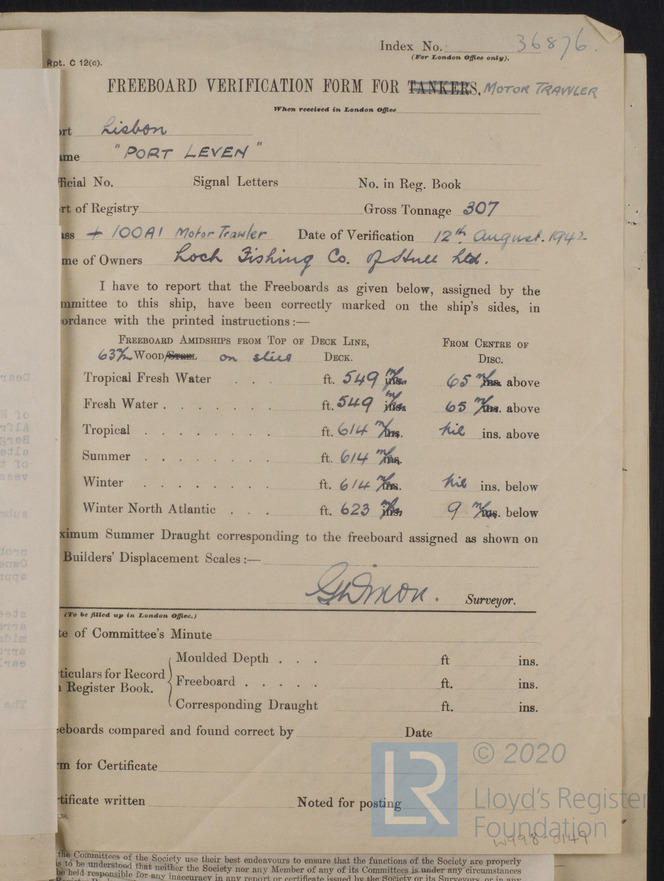 Index No. 36876.
(For London Office only).
Rpt. C 12(c).
FREEBOARD VERIFICATION FORM FOR TANKERS, MOTOR TRAWLER
When received in London Office
ort Lisbon
ame "PORT LEVEN"
fficial No. Signal Letters No. in Reg. Book
rt of Registry Gross Tonnage 307
ass + 100A1 Motor Trawler Date of Verification 12th August. 1942
me of Owners Loch Fishing Co. of Hull Ltd.
I have to report that the Freeboards as given below, assigned by the
mmittee to this ship, have been correctly marked on the ship's sides, in
ordance with the printed instructions:—
FREEBOARD AMIDSHIPS FROM TOP OF DECK LINE, FROM CENTRE OF
WOOD/STEEL on DECK. DISC.
Tropical Fresh Water . . . ft. 549 m/m ins. 65 m/m ins. above
Fresh Water . . . . . ft. 549 m/m ins. 65 m/m ins. above
Tropical . . . . . . . ft. 614 m/m ins. nil ins. above
Summer . . . . . . ft. 614 m/m ins.
Winter . . . . . . ft. 614 m/m ins. nil ins. below
Winter North Atlantic . . . ft. 623 m/m ins. 9 m/m ins. below
ximum Summer Draught corresponding to the freeboard assigned as shown on
Builders' Displacement Scales:—
Surveyor.
(To be filled up in London Office.)
te of Committee's Minute
Moulded Depth . . . ft ins.
ticulars for Record
Register Book.
Freeboard . . . . . ft. ins.
Corresponding Draught ft. ins.
eeboards compared and found correct by Date
rm for Certificate
rtificate written Noted for posting
LR
© 2020
Lloyd's Register
Foundation
W998-0149
the Committees of the Society use their best endeavours to ensure that the functions of the Society are properly
is to be understood that neither the Society nor any Member of any of its Committees is under any circumstances
be held responsible for any inaccuracy in any report or certificate issued by the Society or its Surveyors, or in any